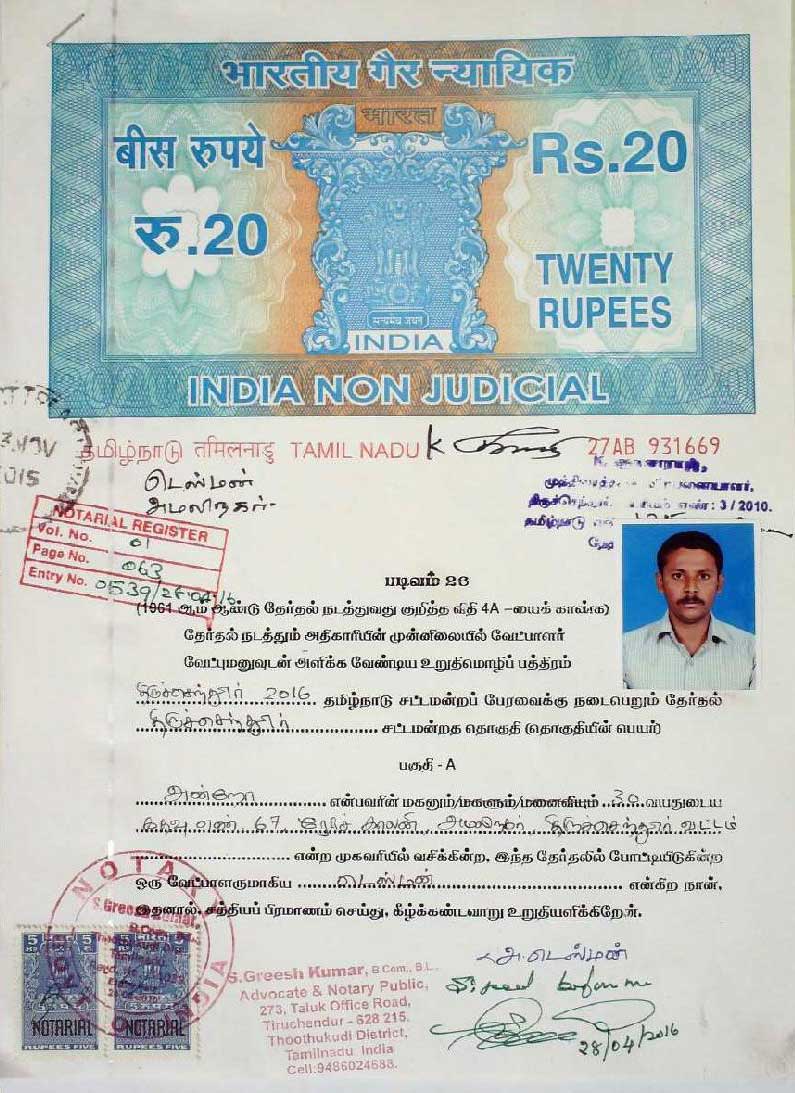 भारतीय गैर न्यायिक
भारत
बीस रुपये
Rs.20
रु.20
TWENTY
RUPEES
सत्यमेव जयते
INDIA
INDIA NON JUDICIAL
NOV
2015
தமிழ்நாடு तमिलनाडु TAMIL NADU K 27AB 931669
டெஸ்மன்
அமலிநகர்
முத்திரைத்தாள் விற்பனையாளர்,
எண்: 3/2010.
NOTARIAL REGISTER
Vol. No. 01
Page No. 063
Entry No. 0539/28/04/16
படிவம் 26
(1961 ஆம் ஆண்டு தேர்தல் நடத்துவது குறித்த விதி 4A –யைக் காண்க)
தேர்தல் நடத்தும் அதிகாரியின் முன்னிலையில் வேட்பாளர்
வேட்புமனுவுடன் அளிக்க வேண்டிய உறுதிமொழிப் பத்திரம்
திருச்செந்தூர் 2016 தமிழ்நாடு சட்டமன்றப் பேரவைக்கு நடைபெறும் தேர்தல்
திருச்செந்தூர் சட்டமன்றத தொகுதி (தொகுதியின் பெயர்)
பகுதி - A
அன்றோ என்பவரின் மகனும்/மகளும்/மனைவியும் 30 வயதுடைய
கதவு எண் 67, காலனி, அமலிநகர் திருச்செந்தூர் வட்டம்
என்ற முகவரியில் வசிக்கின்ற, இந்த தேர்தலில் போட்டியிடுகின்ற
ஒரு வேட்பாளருமாகிய டெஸ்மன் என்கிற நான்,
இதனால், சத்தியப் பிரமாணம் செய்து, கீழ்க்கண்டவாறு உறுதியளிக்கிறேன்.
NOTARY
INDIA
அ.டெஸ்மன்
S.Greesh Kumar, B.Com., B.L.,
Advocate & Notary Public,
273, Taluk Office Road,
Tiruchendur - 628 215.
Thoothukudi District,
Tamilnadu. India
Cell:9486024688.
Signed before me
28/04/2016
NOTARIAL
NOTARIAL
RUPEES FIVE
RUPEES FIVE